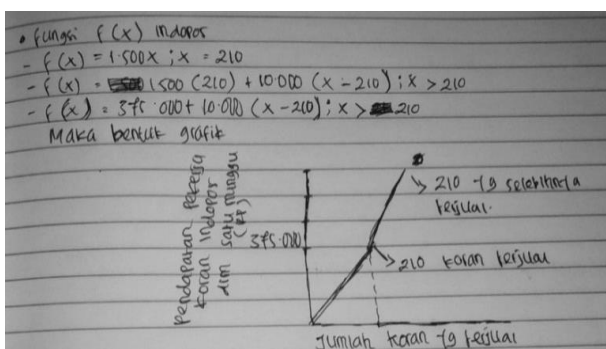 • Fungsi f(x) Indopos
- f(x) = 1.500x ; x = 210
- f(x) = 1500 (210) + 10.000 (x - 210) ; x > 210
- f(x) = 375.000 + 10.000 (x - 210) ; x > 210
Maka bentuk grafik
Pendapatan pekerja
Koran Indopos
dlm satu minggu
(RP)
375.000
210 yg selebihnya
terjual.
210 koran terjual
Jumlah koran yg terjual